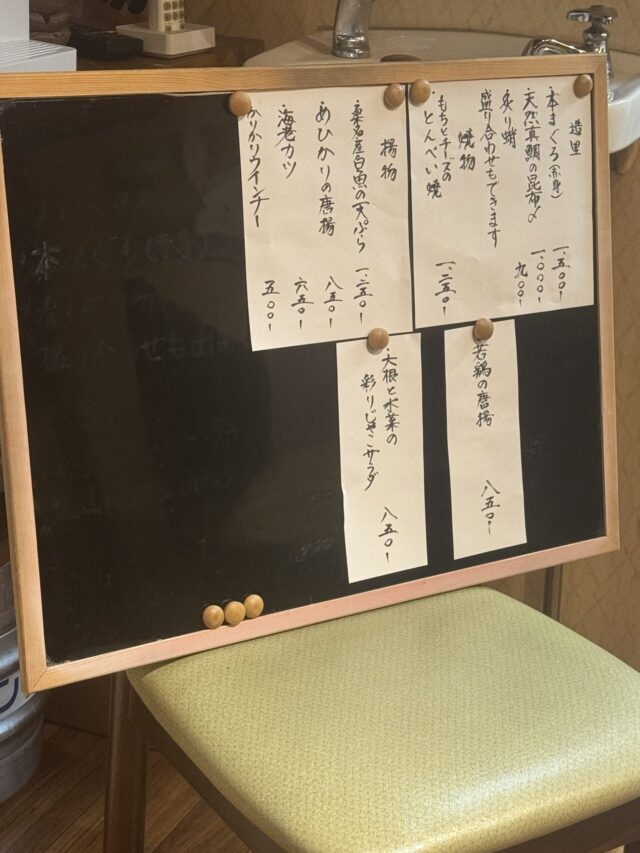 造里
・本まぐろ(赤身) 一、五〇〇-
・天然真鯛の昆布〆 一、〇〇〇-
・炙り蛸 九〇〇-
盛り合わせもできます
焼物
・もちとチーズの
とんぺい焼 一、二五〇-
揚物
・桑名産白魚の天ぷら 一、二五〇-
・めひかりの唐揚 八五〇-
・海老カツ 六五〇-
・かりかりウインナー 五〇〇-
・若鶏の唐揚 八五〇-
・大根と水菜の
彩りじゃこサラダ 八五〇-